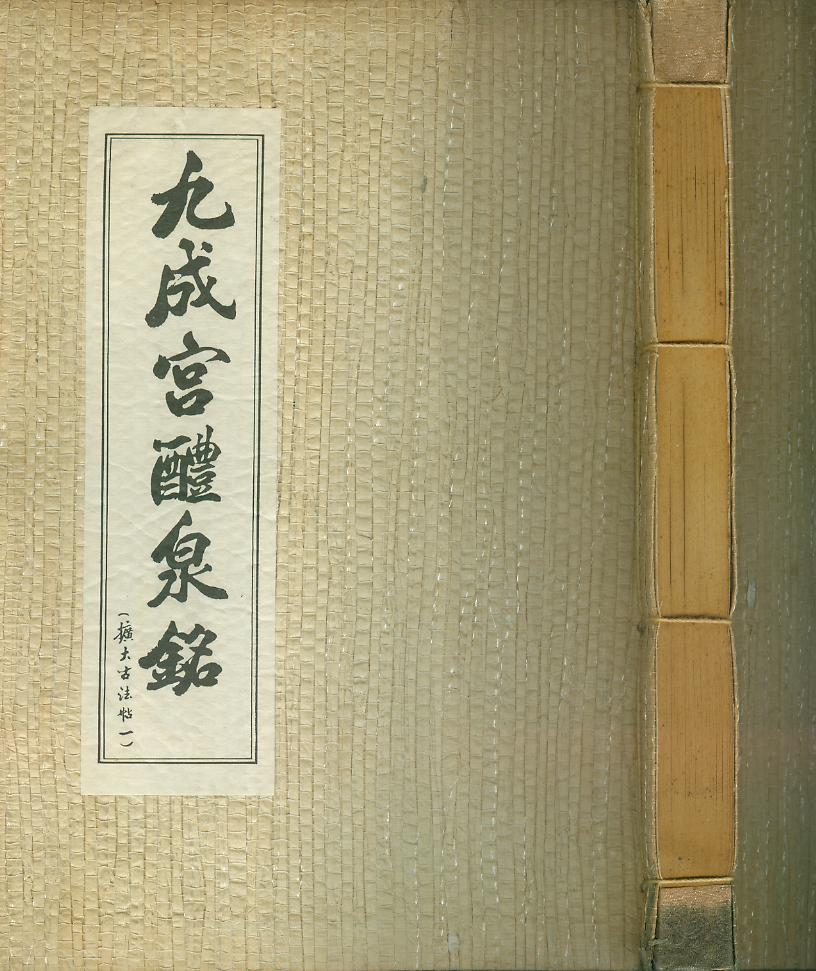 九成宮醴泉銘
（擴大古法帖一）